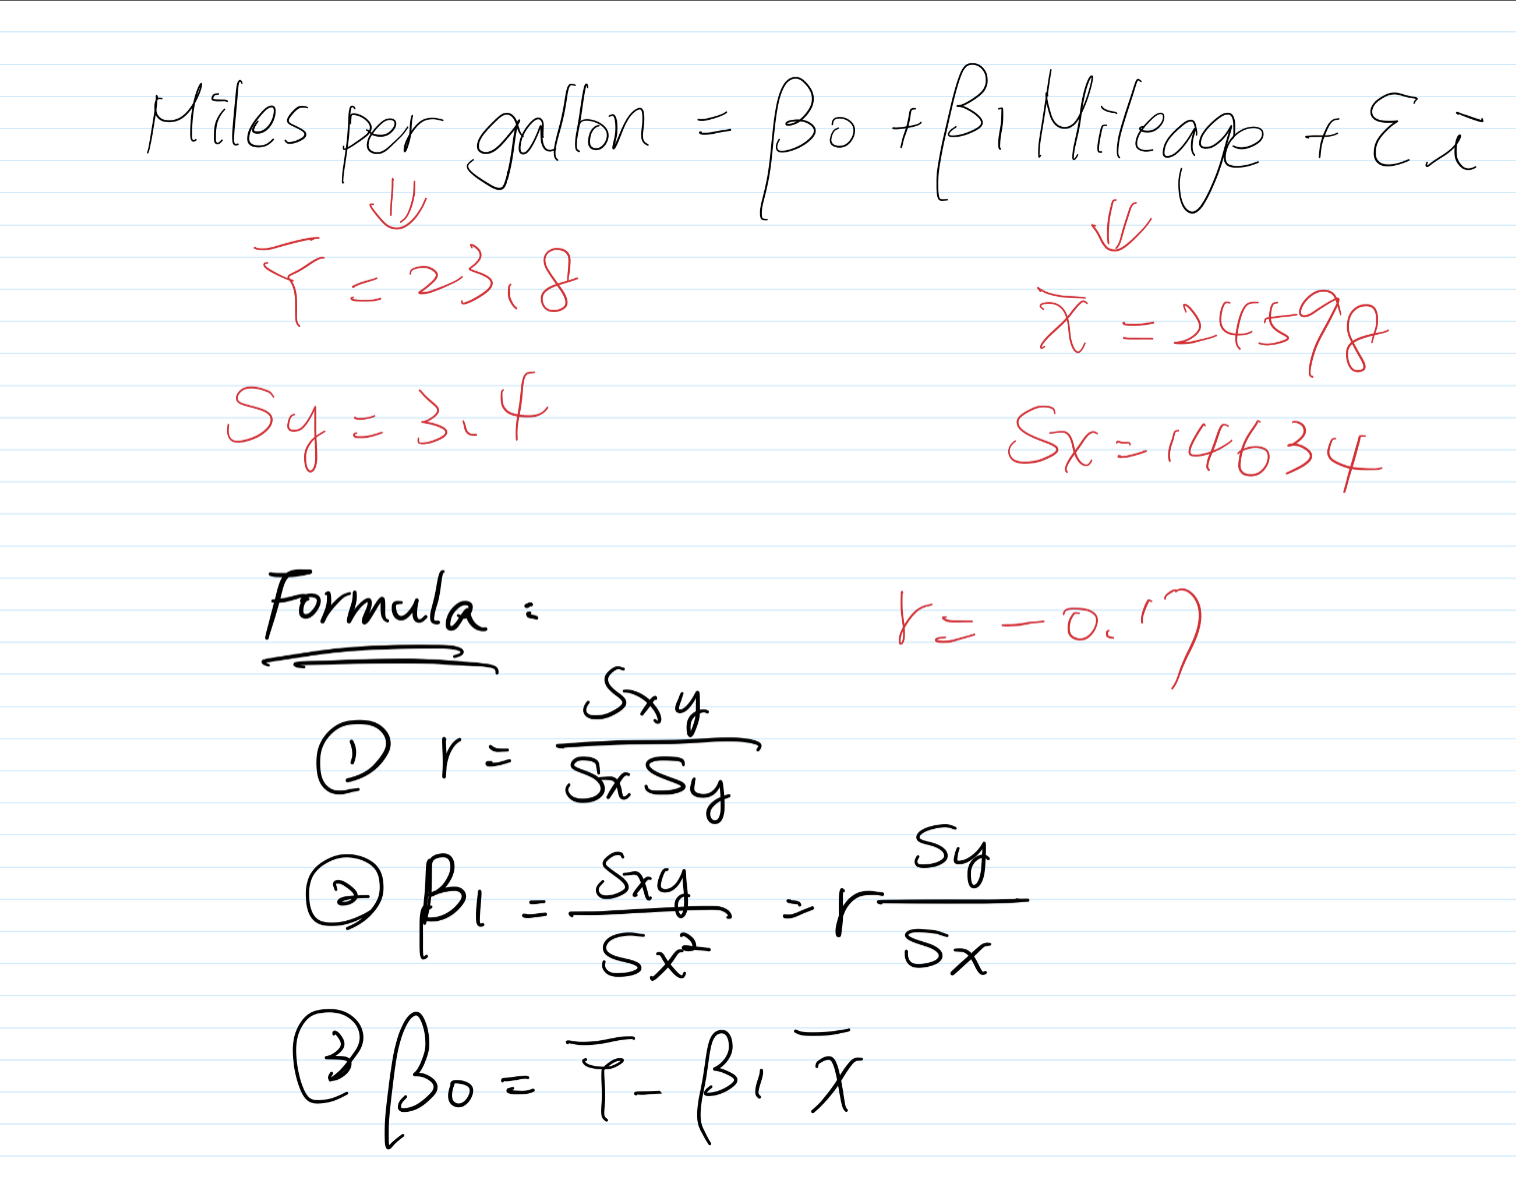 Miles per gallon = β0 + β1 Mileage + εi
⇓ ⇓
Y̅ = 23.8
x̅ = 24598
Sy = 3.4
Sx = 14634
Formula :
r = -0.17
① r = Sxy / SxSy
② β1 = Sxy / Sx² = r Sy / Sx
③ β0 = Y̅ - β1 X̅